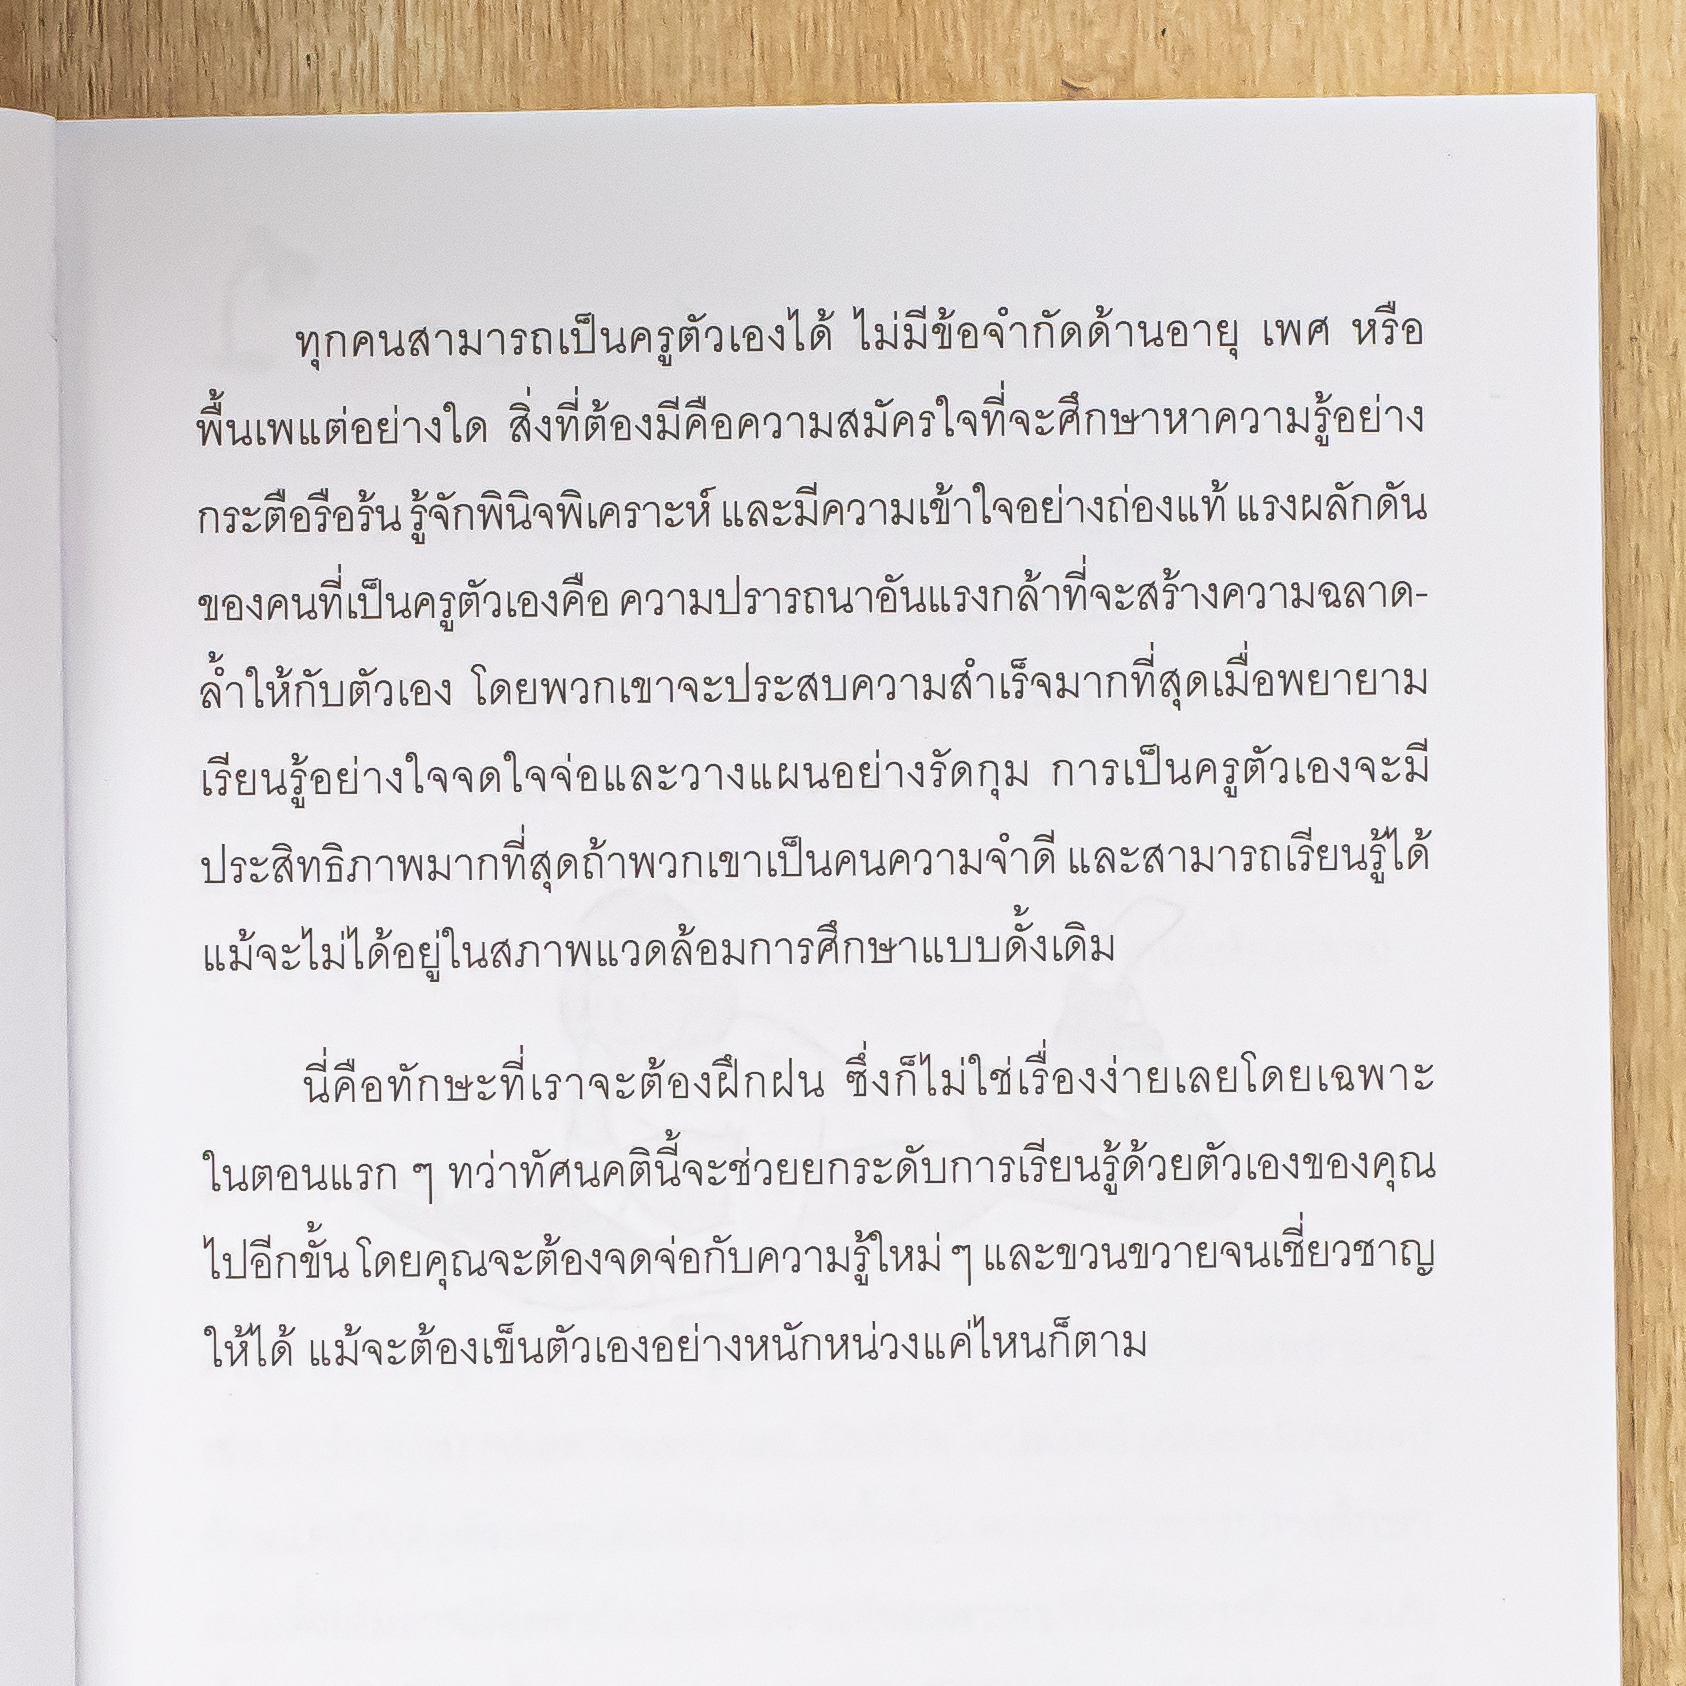 ทุกคนสามารถเป็นครูตัวเองได้ ไม่มีข้อจำกัดด้านอายุ เพศ หรือ
พื้นเพแต่อย่างใด สิ่งที่ต้องมีคือความสมัครใจที่จะศึกษาหาความรู้อย่าง
กระตือรือร้น รู้จักพินิจพิเคราะห์ และมีความเข้าใจอย่างถ่องแท้ แรงผลักดัน
ของคนที่เป็นครูตัวเองคือ ความปรารถนาอันแรงกล้าที่จะสร้างความฉลาด-
ล้ำให้กับตัวเอง โดยพวกเขาจะประสบความสำเร็จมากที่สุดเมื่อพยายาม
เรียนรู้อย่างใจจดใจจ่อและวางแผนอย่างรัดกุม การเป็นครูตัวเองจะมี
ประสิทธิภาพมากที่สุดถ้าพวกเขาเป็นคนความจำดี และสามารถเรียนรู้ได้
แม้จะไม่ได้อยู่ในสภาพแวดล้อมการศึกษาแบบดั้งเดิม
นี่คือทักษะที่เราจะต้องฝึกฝน ซึ่งก็ไม่ใช่เรื่องง่ายเลยโดยเฉพาะ
ในตอนแรก ๆ ทว่าทัศนคตินี้จะช่วยยกระดับการเรียนรู้ด้วยตัวเองของคุณ
ไปอีกขั้น โดยคุณจะต้องจดจ่อกับความรู้ใหม่ ๆ และขวนขวายจนเชี่ยวชาญ
ให้ได้ แม้จะต้องเข็นตัวเองอย่างหนักหน่วงแค่ไหนก็ตาม